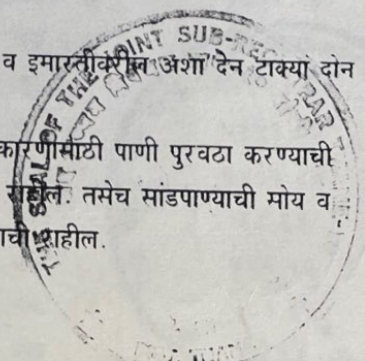 व इमारतीवरील अशा देन टाक्या दोन
कारणासाठी पाणी पुरवठा करण्याची
राहील. तसेच सांडपाण्याची मोय व
ाची राहील.
THE SEAL OF THE JOINT SUB-REGISTRAR